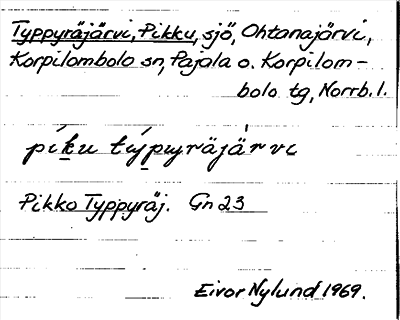 Typpyräjärvi, Pikku, sjö, Ohtanajärvi,
Korpilombolo sn, Pajala o. Korpilom-
bolo tg, Norrb. l.
píku týpyräjàrvi
Pikko Typpyräj. Gn 23
Eivor Nylund 1969.